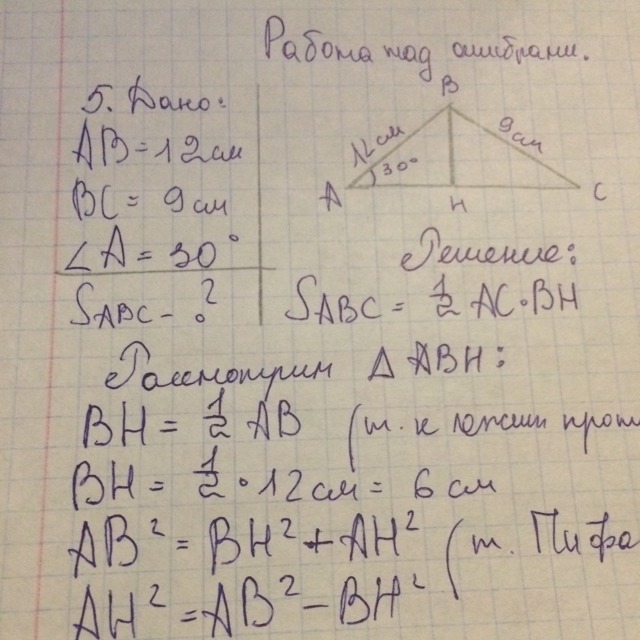 Работа над ошибками.
5. Дано:
AB = 12 см
BC = 9 см
∠A = 30°
SABC - ?
B
12 см
9 см
30°
A
H
C
Решение:
SABC = 1/2 AC·BH
Рассмотрим Δ ABH:
BH = 1/2 AB (т. к лежит прот
BH = 1/2 · 12 см = 6 см
AB² = BH² + AH² (т. Пифа
AH² = AB² - BH²